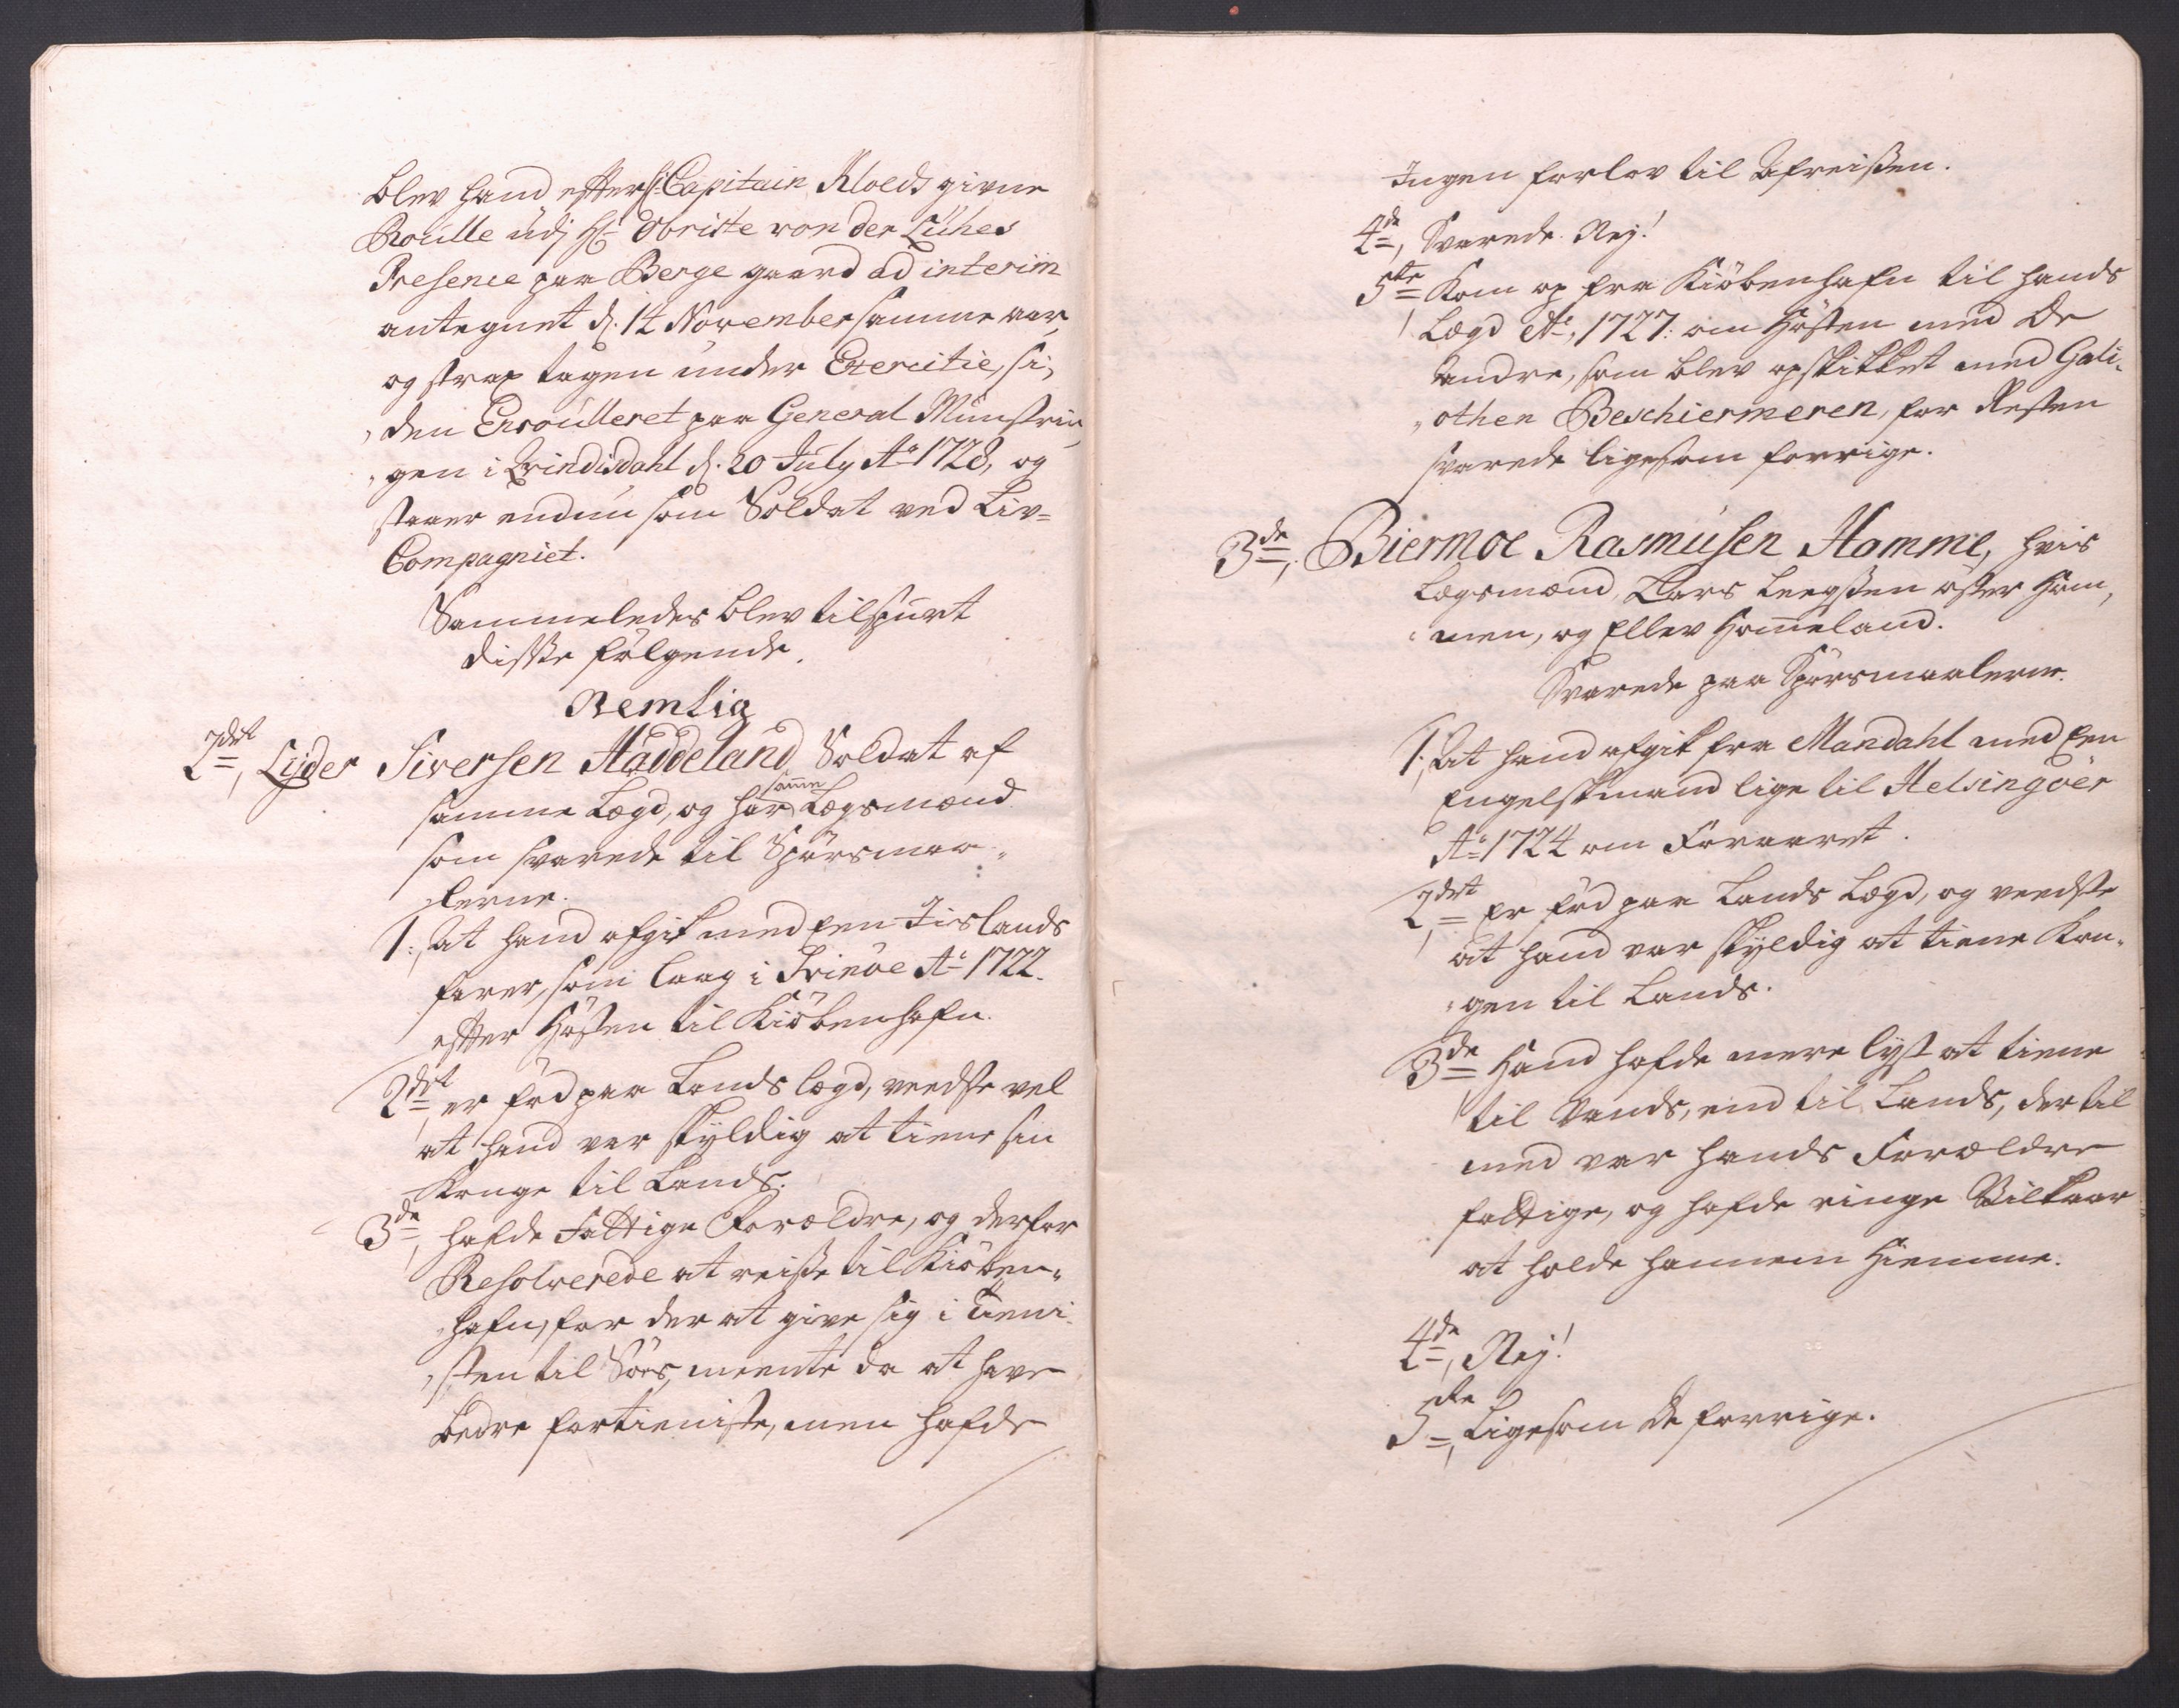 blev hand efter Hr: Capitain Kloeds givne
Roulle udj Hr: Obriste von der Lühes
Presence paa Berge gaard ad interim
antegnet d: 14 November samme aar,
og strax tagen under Exercitie, si,
,den Enroulleret paa General Munstrin,
,gen i Qvindisdahl d: 20 July Ao 1728, og
staaer endnu som Soldat ved Liv=
Compagniet.
Sammeledes blev tilspurt
disse følgende,
Nemlig
2det, Lyder Siversen Haddeland Soldat af
samme Lægd, og har samme Lægsmænd
som svarede til Spørsmaa„
lerne.
1:, At hand afgik med een Iislands
farer, som laag i Svinöe Ao 1722.
efter Høsten til Kiöbenhafn.
2det, er fød paa Lands lægd, veedste vel
at hand var skyldig at tiene sin
Konge til Lands.
3de, hafde Fattige Forældre, og derfor
Resolverede at reise til Kiöben„
„hafn, for der at give sig i tieni„
„sten til Söes, meente da at have
bedre fortieniste, men hafde
Ingen forlov til Afreisen.
4de, Svarede. Nej!
5te, Kom op fra Kiöbenhafn til hands
Lægd Ao: 1727. om Høsten med de
andre, som blev opskikket med Gali„
„othen Beschiermeren, for Resten
svarede ligesom forrige.
3de, Biermoe Rasmusen Homme, hvis
Lægsmænd, Lars Leegsen øster Hom,
„men, og Ellev Homeland.
Svarede paa Spørsmaalene.
1:, At hand afgik fra Mandahl med Een
Engelskmand lige til Helsingöer
Ao 1724 om Foraaret.
2det, Er fød paa Lands Lægd, og veedste
at hand var skyldig at tiene Kon„
„gen til Lands.
3de, Hand hafde mere lyst at tiene
til Vands, end til Lands, der til
med var hands Forældre
fattige, og hafde ringe Vilkaar
at holde hannem Hiemme.
4de, Nej!
5te, Ligesom de forrige.